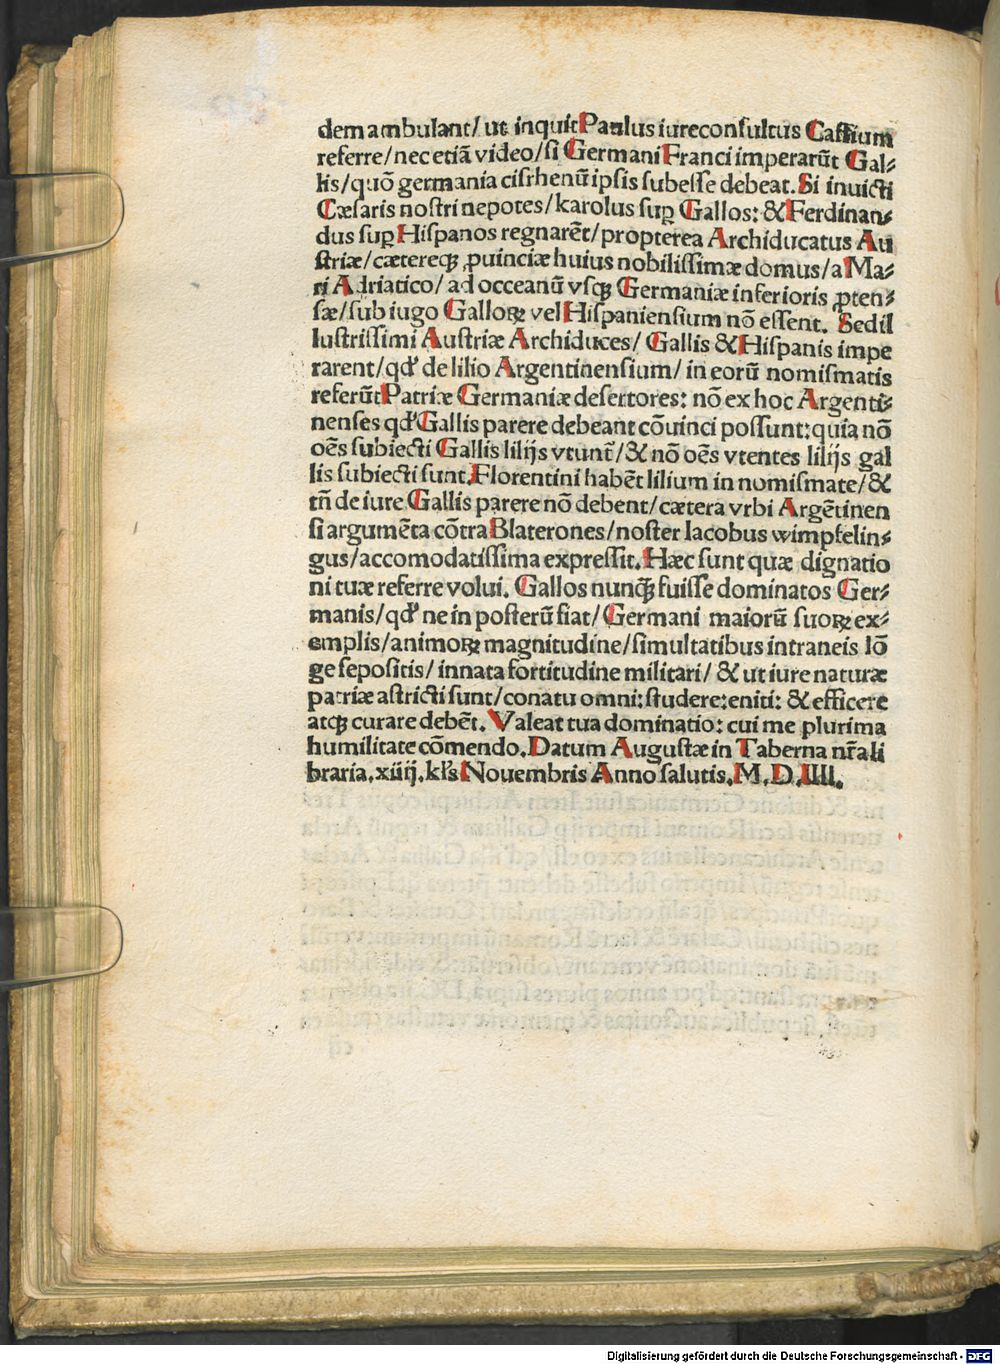 dem ambulant/ ut inquit Paulus iureconsultus Cassium
referre/ nec etiā video/ si Germani Franci imperarūt Gal⸗
lis/ quō germania cisrhenū ipsis subesse debeat. Si inuicti
Cæsaris nostri nepotes/ karolus suꝑ Gallos: & Ferdinan⸗
dus suꝑ Hispanos regnarēt/ propterea Archiducatus Au
striæ/ cætereqꝫ ꝓuinciæ huius nobilissimæ domus/ a Ma⸗
ri Adriatico/ ad occeanū vsqꝫ Germaniæ inferioris ꝓten⸗
sæ/ sub iugo Galloꝝ vel Hispaniensium nō essent. Sed il
lustrissimi Austriæ Archiduces/ Gallis & Hispanis impe
rarent/ qd' de lilio Argentinensium/ in eorū nomismatis
referūt Patriæ Germaniæ desertores: nō ex hoc Argenti⸗
nenses qd' Gallis parere debeant cōuinci possunt: quia nō
oēs subiecti Gallis lilijs vtunt̄/ & nō oēs vtentes lilijs gal
lis subiecti sunt. Florentini habēt lilium in nomismate/ &
tñ de iure Gallis parere nō debent/ cætera vrbi Argētinen
si argumēta cōtra Blaterones/ noster Iacobus wimpfelin⸗
gus/ accomodatissima expressit. Hæc sunt quæ dignatio
ni tuæ referre volui. Gallos nunqꝫ̄ fuisse dominatos Ger⸗
manis/ qd' ne in posterū fiat/ Germani maiorū suoꝝ ex⸗
emplis/ animoꝝ magnitudine/ simultatibus intraneis lō
ge sepositis/ innata fortitudine militari/ & ut iure naturæ
patriæ astricti sunt/ conatu omni: studere: eniti: & efficere
atqꝫ curare debēt. Valeat tua dominatio: cui me plurima
humilitate cōmendo. Datum Augustæ in Taberna nr̄a li
braria. xiiij. kl's Nouembris Anno salutis. M. D. IIII.
Digitalisierung gefördert durch die Deutsche Forschungsgemeinschaft - DFG